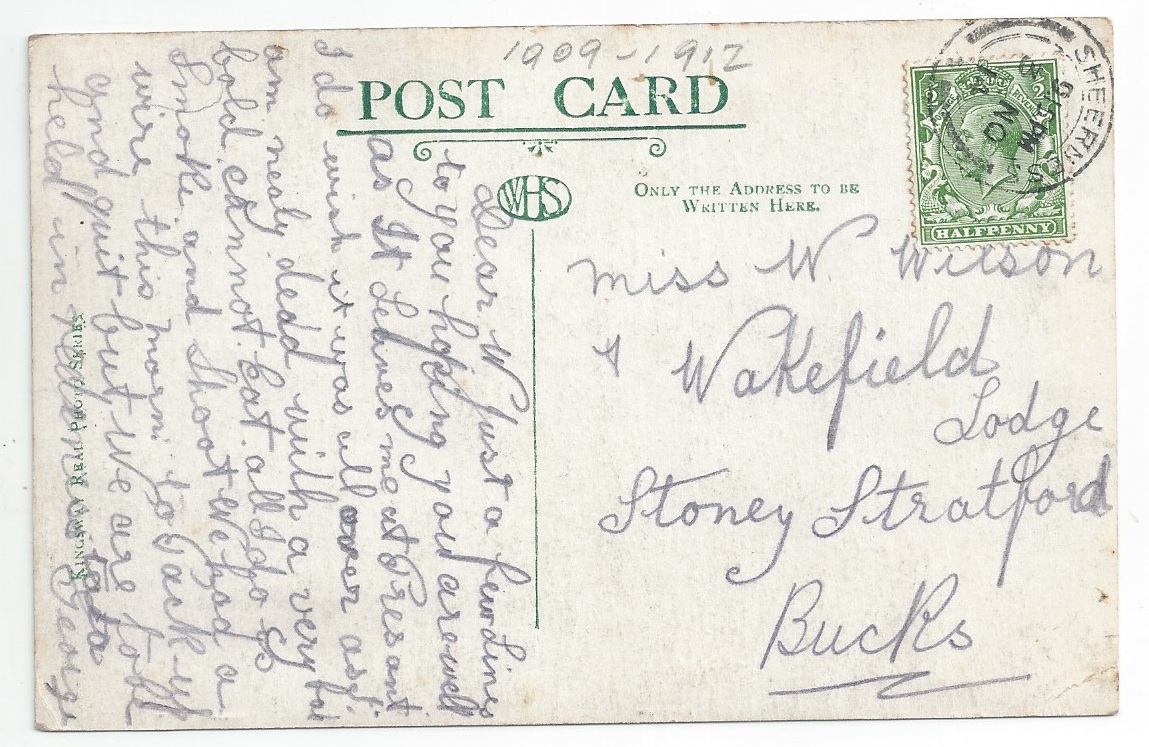 1909-1912
POST CARD
WHS
ONLY THE ADDRESS TO BE
WRITTEN HERE.
SHEERNESS
NO
HALFPENNY
Miss W. Wilson
Wakefield
Lodge
Stoney Stratford
Bucks
Dear W Just a few Lines
to you hoping you are well
as It Leaves me at Presant
I do wish it was all over as I
am nealy dead with a very bad
cold, cannot Eat. all I do is
Smoke. and Shoot We had a
wire this morn. to Pack up
and quit but We are told
held in readiness tata
George
KINGSWAY REAL PHOTO SERIES